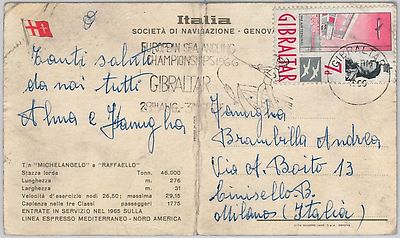 Italia
SOCIETÀ DI NAVIGAZIONE - GENOVA
EUROPEAN SEA ANGLING
CHAMPIONSHIPS 1966
GIBRALTAR
28TH AUG. - 3
GIBRALTAR
GIBRALTAR
7P
Tanti saluti
da noi tutti
Alma e Famiglia
T/n "MICHELANGELO" e "RAFFAELLO"
Stazza lorda Tonn. 46.000
Lunghezza m. 276
Larghezza m. 31
Velocità d'esercizio nodi 26,50; massima 29,15
Capienza nelle tre Classi passeggeri 1775
ENTRATE IN SERVIZIO NEL 1965 SULLA
LINEA ESPRESSO MEDITERRANEO - NORD AMERICA
Famiglia
Brambilla Andrea
Via A. Boito 13
Cinisello B.
Milano (Italia)